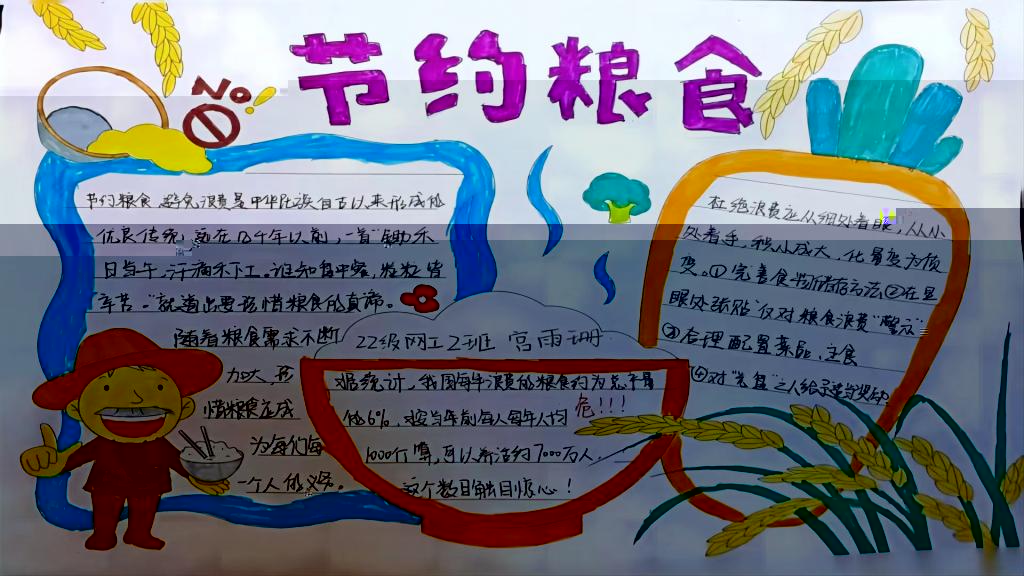 节约粮食
No!
节约粮食、避免浪费是中华民族自古以来形成的
优良传统，早在几千年以前，一首“锄禾
日当午，汗滴禾下土，谁知盘中餐，粒粒皆
辛苦。”就道出要珍惜粮食的真谛。
随着粮食需求不断
加大，
惜粮食应成
为每们每
一个人的义务。
22级网工2班 宫雨珊
据统计，我国每年浪费的粮食约为总产量
的6%，
1000斤算，可以养活约7000万人，
危!!!
这个数目触目惊心！
杜绝浪费应从细处着眼，从小
处着手，积小成大，化量变为质
变。①完善食物储存方法②在显
眼处张贴“仅对粮食浪费“警示”
③合理配置菜品、主食
④对“光盘”之人给予适当奖励